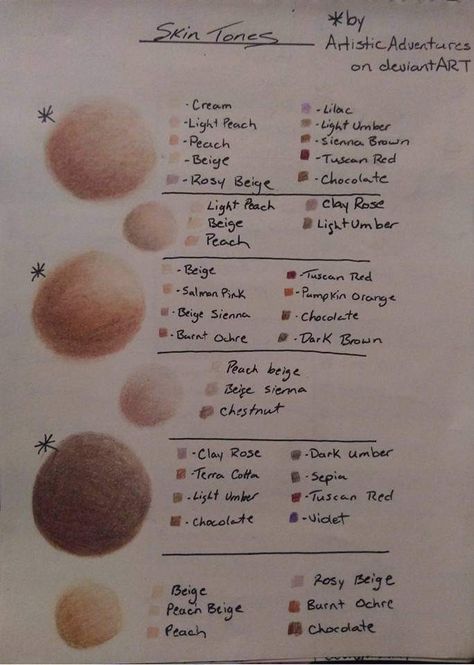 Skin Tones
*by
Artistic Adventures
on deviantART
*
- Cream
- Light Peach
- Peach
- Beige
- Rosy Beige
- Lilac
- Light Umber
- Sienna Brown
- Tuscan Red
- Chocolate
Light Peach
Beige
Peach
Clay Rose
Light Umber
*
- Beige
- Salmon Pink
- Beige Sienna
- Burnt Ochre
- Tuscan Red
- Pumpkin Orange
- Chocolate
- Dark Brown
Peach beige
Beige sienna
Chestnut
*
- Clay Rose
- Terra Cotta
- Light Umber
- Chocolate
- Dark Umber
- Sepia
- Tuscan Red
- Violet
Beige
Peach Beige
Peach
Rosy Beige
Burnt Ochre
Chocolate